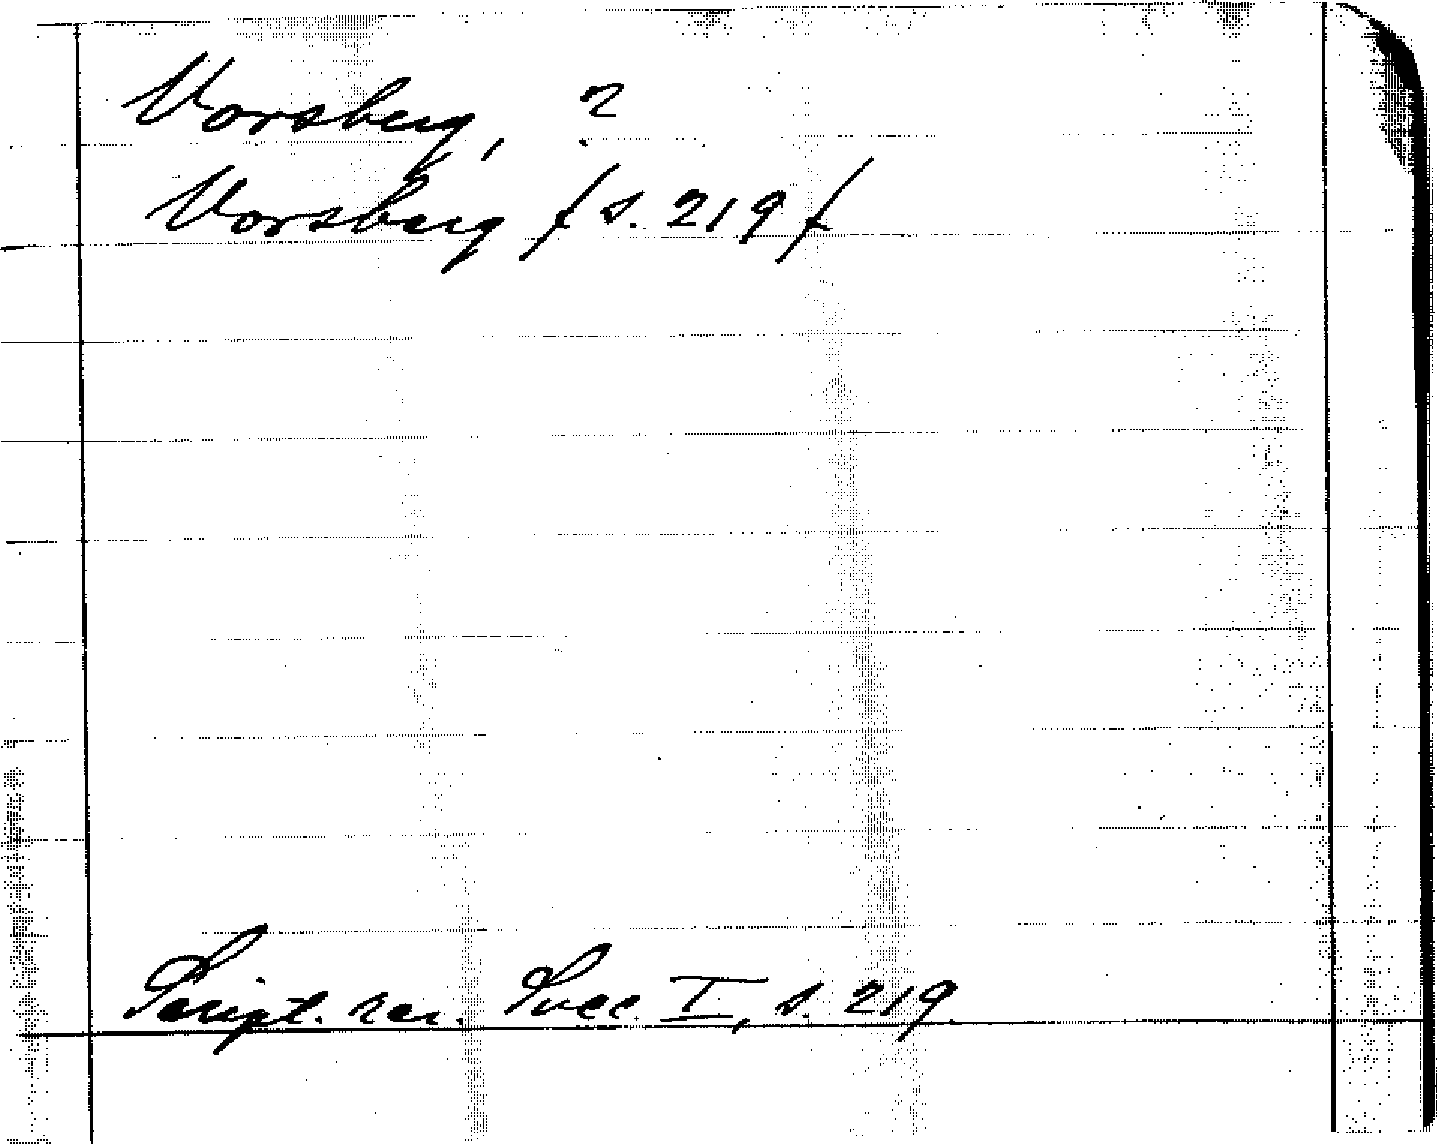 Vorsberg, ?
Vorsberg /s. 219/
Script. rer. Svec. I, s. 219.